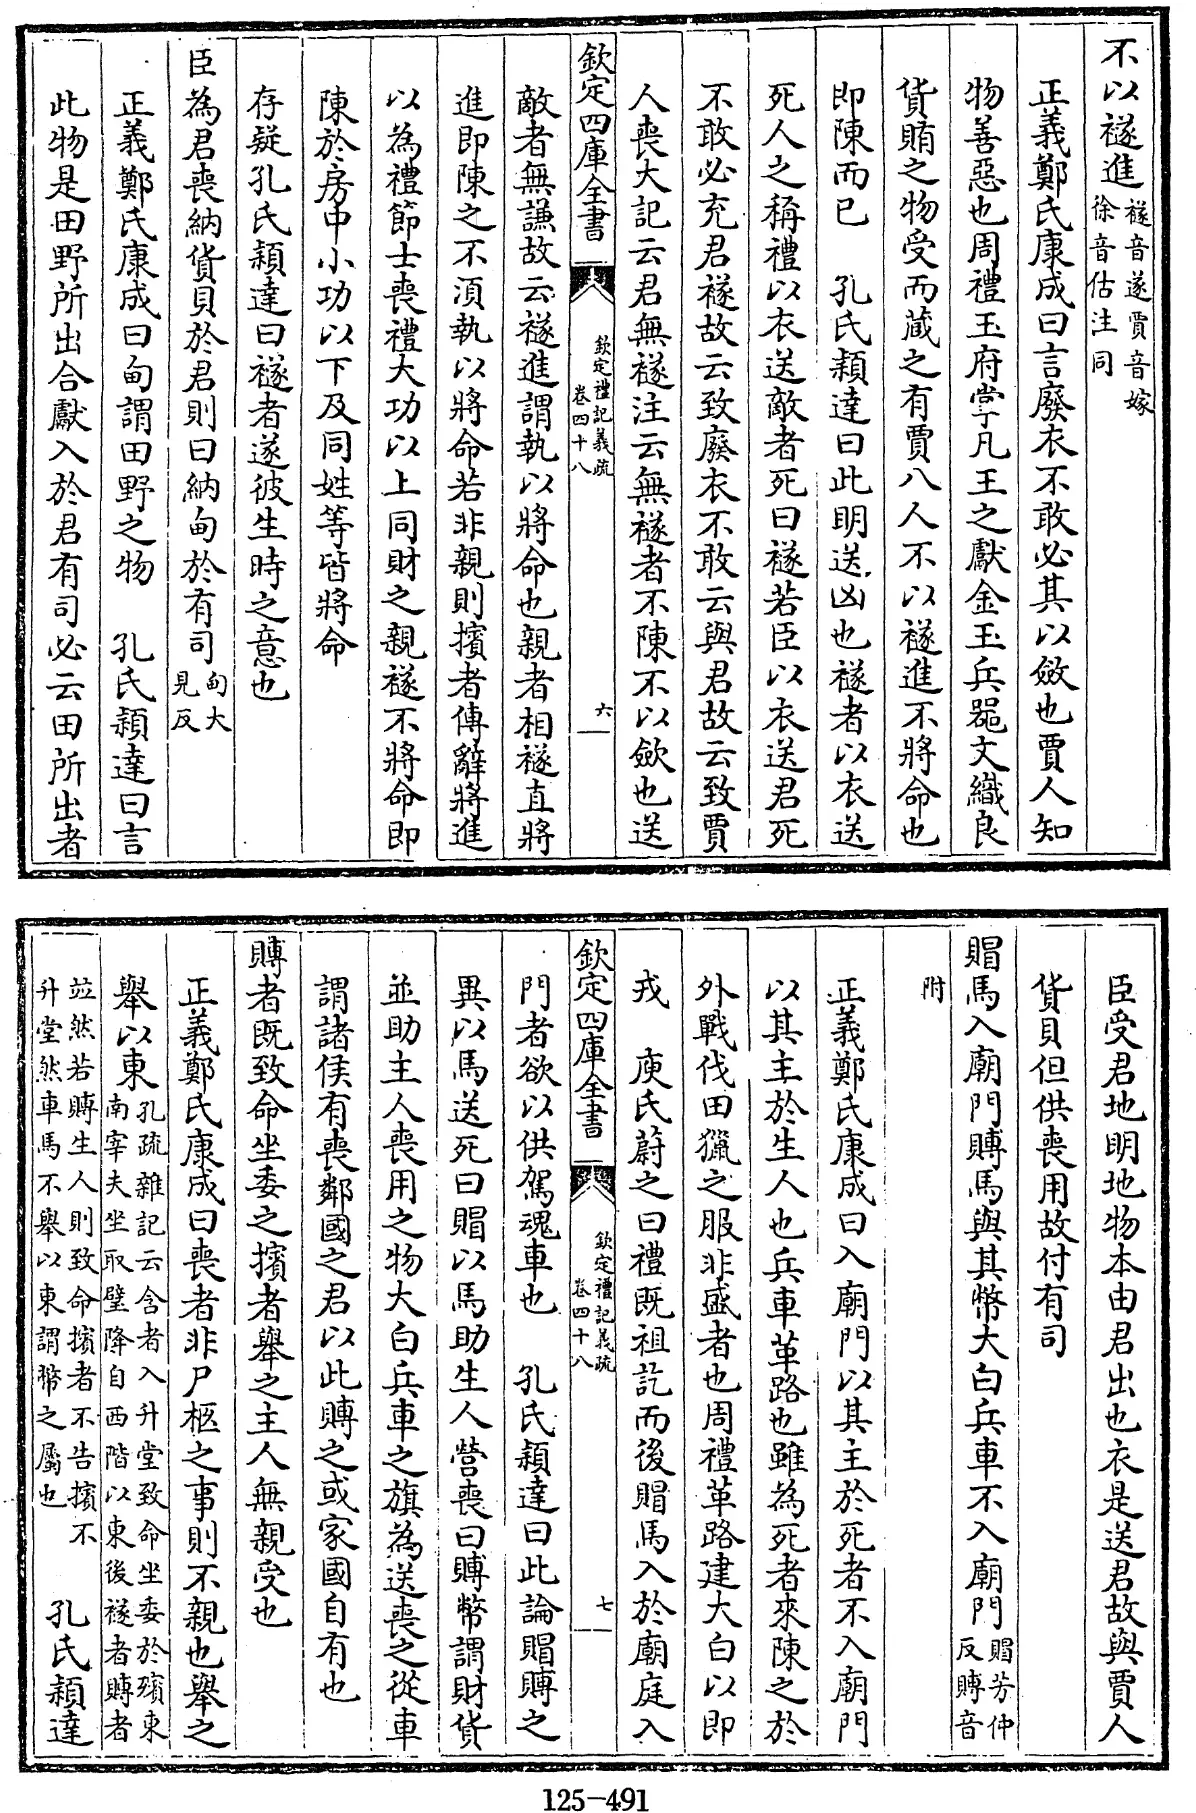 不以襚進襚音遂賈音嫁徐音估注同
正義鄭氏康成曰言廢衣不敢必其以斂也賈人知
物善惡也周禮玉府掌凡王之獻金玉兵器文織良
貨賄之物受而藏之有賈八人不以襚進不將命也
即陳而已　孔氏穎達曰此明送凶也襚者以衣送
死人之稱禮以衣送敵者死曰襚若臣以衣送君死
不敢必充君襚故云致廢衣不敢云與君故云致賈
人喪大記云君無襚注云無襚者不陳不以斂也送
欽定四庫全書　欽定禮記義疏卷四十八　六
敵者無謙故云襚進謂執以將命也親者相襚直將
進即陳之不須執以將命若非親則擯者傳辭將進
以為禮節士喪禮大功以上同財之親襚不將命即
陳於房中小功以下及同姓等皆將命
存疑孔氏穎達曰襚者遂彼生時之意也
臣為君喪納貨貝於君則曰納甸於有司甸大見反
正義鄭氏康成曰甸謂田野之物　孔氏穎達曰言
此物是田野所出合獻入於君有司必云田所出者
臣受君地明地物本由君出也衣是送君故與賈人
貨貝但供喪用故付有司
賵馬入廟門賻馬與其幣大白兵車不入廟門賵芳仲反賻音
附
正義鄭氏康成曰入廟門以其主於死者不入廟門
以其主於生人也兵車革路也雖為死者來陳之於
外戰伐田獵之服非盛者也周禮革路建大白以即
戎　庾氏蔚之曰禮既祖訖而後賵馬入於廟庭入
欽定四庫全書　欽定禮記義疏卷四十八　七
門者欲以供駕魂車也　孔氏穎達曰此論賵賻之
異以馬送死曰賵以馬助生人營喪曰賻幣謂財貨
並助主人喪用之物大白兵車之旗為送喪之從車
謂諸侯有喪鄰國之君以此賻之或家國自有也
賻者既致命坐委之擯者舉之主人無親受也
正義鄭氏康成曰喪者非尸柩之事則不親也舉之
舉以東孔疏雜記云含者入升堂致命坐委於殯東南宰夫坐取璧降自西階以東後襚者賻者
竝然若賻生人則致命擯者不告擯不升堂然車馬不舉以東謂幣之屬也　孔氏穎達
125-491